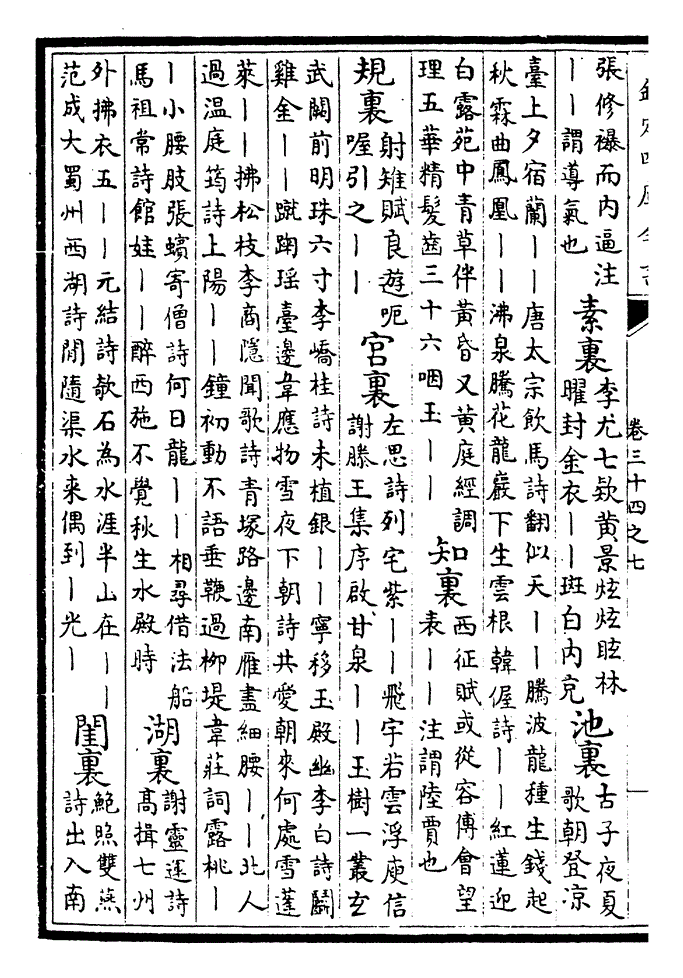 卷三十四之七
張修襮而内逼注
丨丨謂導氣也
素裏
李尤七欵黄景炫炫眩林
曜封金衣丨丨斑白内充
池裏
古子夜夏
歌朝登凉
臺上夕宿蘭丨丨唐太宗飲馬詩翻似天丨丨騰波龍種生錢起
秋霖曲鳳凰丨丨沸泉騰花龍巖下生雲根韓偓詩丨丨紅蓮迎
白露苑中青草伴黄昏又黄庭經調
理五華精髮齒三十六咽玉丨丨
知裏
西征賦或從容傅會望
表丨丨注謂陸賈也
規裏
射雉賦良遊呃
喔引之丨丨
宫裏
左思詩列宅紫丨丨飛宇若雲浮庾信
謝滕王集序啟甘泉丨丨玉樹一叢玄
武闕前明珠六寸李嶠桂詩未植銀丨丨寧移玉殿幽李白詩鬬
雞金丨丨蹴踘瑶臺邊韋應物雪夜下朝詩共愛朝來何處雪蓬
萊丨丨拂松枝李商隱聞歌詩青塚路邊南雁盡細腰丨丨北人
過温庭筠詩上陽丨丨鐘初動不語垂鞭過栁堤韋莊詞露桃丨
丨小腰肢張蠙寄僧詩何日龍丨丨相尋借法船
馬祖常詩館娃丨丨醉西施不覺秋生水殿時
湖裏
謝靈運詩
高揖七州
外拂衣五丨丨元結詩欹石為水涯半山在丨丨
范成大蜀州西湖詩閒隨渠水来偶到丨光丨
閨裏
鮑照雙燕
詩出入南